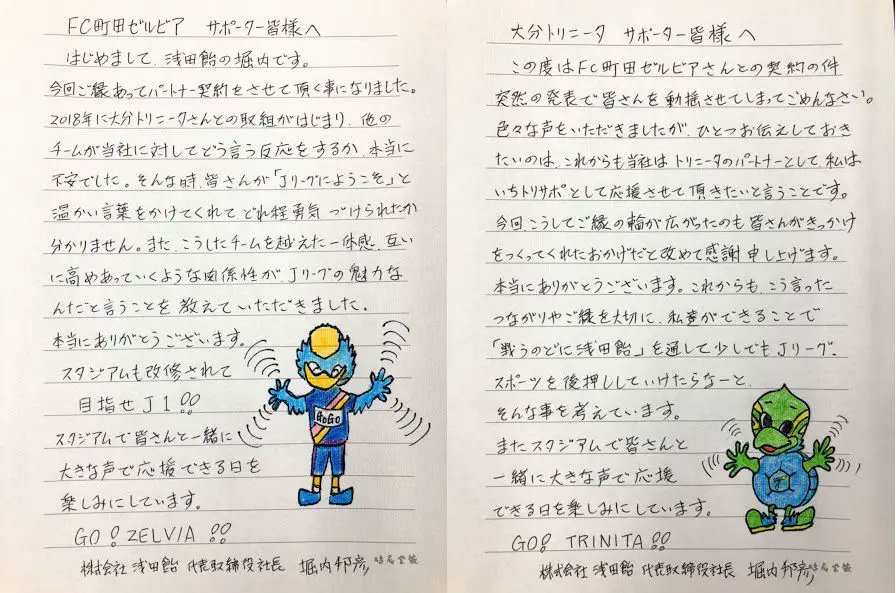 FC町田ゼルビア サポーター皆様へ
はじめまして、浅田飴の堀内です。
今回ご縁あってパートナー契約をさせて頂く事になりました。
2018年に大分トリニータさんとの取組がはじまり、他の
チームが当社に対してどう言う反応をするか、本当に
不安でした。そんな時、皆さんが「Jリーグにようこそ」と
温かい言葉をかけてくれて どれ程勇気づけられたか
分かりません。また、こうしたチームを越えた一体感、互い
に高めあっていくような関係性が、Jリーグの魅力な
んだと言うことを 教えていただきました。
本当にありがとうございます。
スタジアムも改修されて
目指せJ1!!
スタジアムで皆さんと一緒に
大きな声で応援できる日を
楽しみにしています。
GO! ZELVIA!!
GOGO
株式会社 浅田飴 代表取締役社長 堀内邦彦
大分トリニータ サポーター皆様へ
この度はFC町田ゼルビアさんとの契約の件
突然の発表で皆さんを動揺させてしまってごめんなさい。
色々な声をいただきましたが、ひとつお伝えしておき
たいのは、これからも当社はトリニータのパートナーとして、私は
いちトリサポとして応援させて頂きたいと言うことです。
今回、こうしてご縁の輪が広がったのも皆さんがきっかけ
をつくってくれたおかげだと改めて感謝申し上げます。
本当にありがとうございます。これからも、こう言った
つながりやご縁を大切に、私達ができることで
「戦うのどに浅田飴」を通して少しでもJリーグ、
スポーツを後押ししていけたらなーと、
そんな事を考えています。
またスタジアムで皆さんと
一緒に大きな声で応援
できる日を楽しみにしています。
GO! TRINITA!!
株式会社 浅田飴 代表取締役社長 堀内邦彦